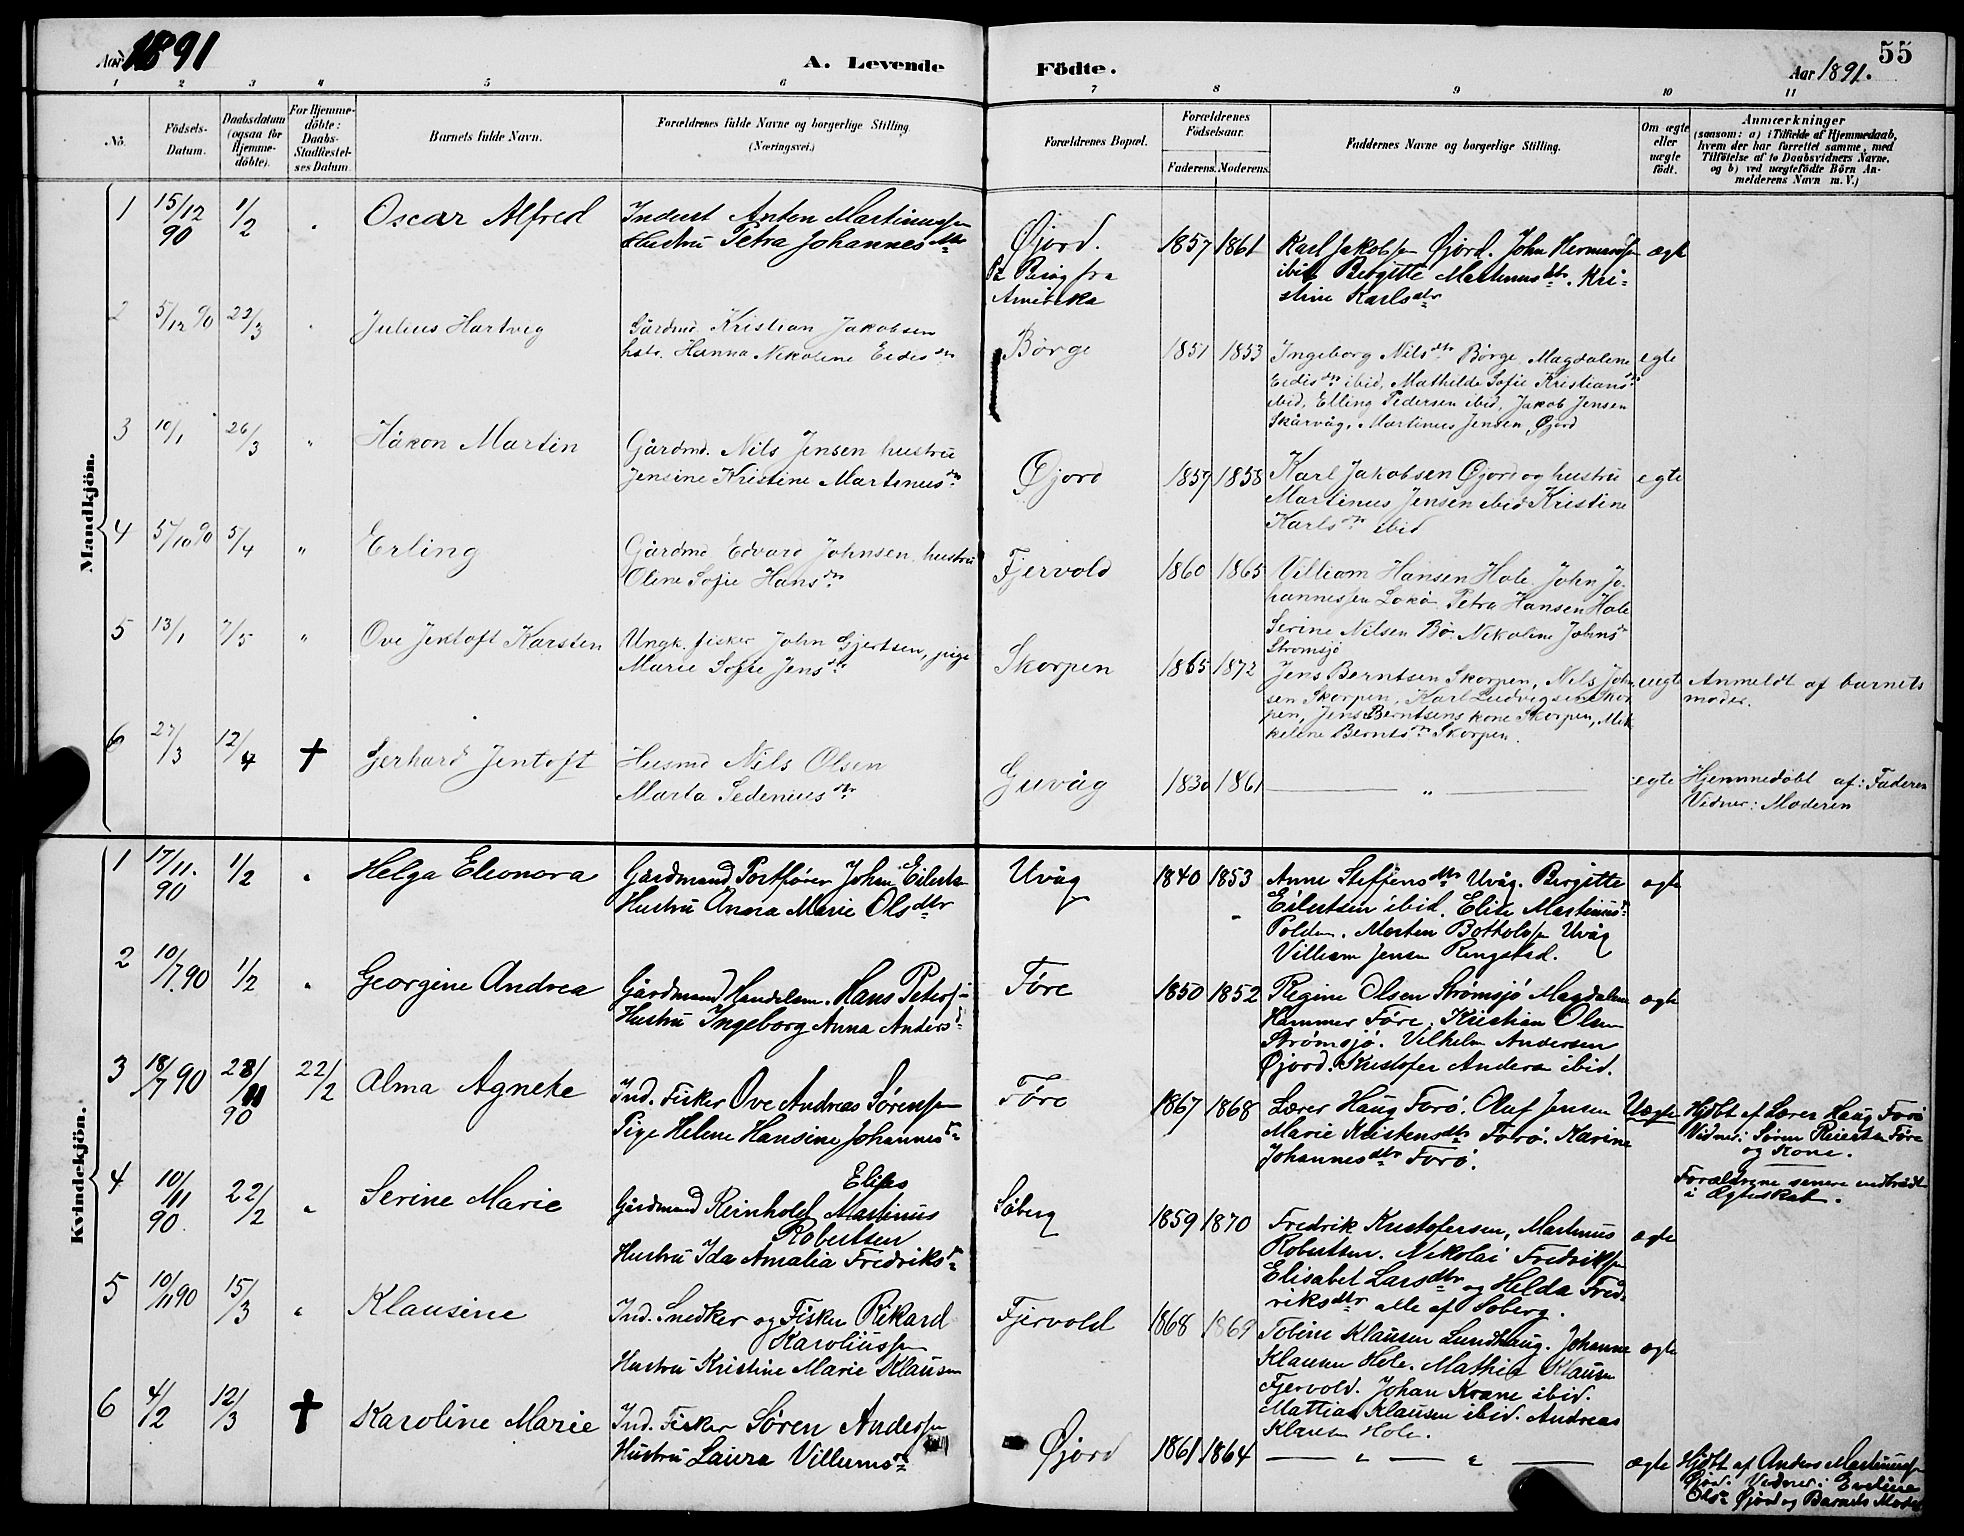 Aar 1891
A. Levende Födte.
Aar 1891.
55
1 2 3 4 5 6 7 8 9 10 11
No.
Födsels-Datum.
Daabsdatum (ogsaa for Hjemme-döbte).
For Hjemme-döbte: Daabs-Stadfæstel-ses Datum
Barnets fulde Navn.
Forældrenes fulde Navne og borgerlige Stilling (Næringsvei.)
Forældrenes Bopæl.
Forældrenes Födselsaar.
Faderens. Moderens.
Faddernes Navne og borgerlige Stilling.
Om ægte eller uægte födt.
Anmærkninger
(saasom: a) i Tilfælde af Hjemmedaab, hvem der har forrettet samme, med Tilföielse af to Daabsvidners Navne, og b) ved uægtefödte Börn An-melderens Navn m. V.)
Mandkjön.
1 15/12 90 1/2 " Oscar Alfred
Inderst Anton Martinussen
Hustru Petra Johannesdtr
Øjord.
På Besøg fra
Amerika
1857 1861
Karl Jakobsen Øjord. John Hermansen
ibid Birgitte Martinusdtr. Kri-
stine Karlsdtr
ægte
2 5/12 90 22/3 " Julius Hartvig
Gårdmd. Kristian Jakobsen
hstr. Hanna Nikoline Eedisdtr
Børge
1851 1853
Ingeborg Nilsdtr Børge, Magdalene
Eedisdtr ibid, Mathilde Sofie Kristiansdtr
ibid, Elling Pedersen ibid, Jakob Jensen
Skårvåg, Martinus Jensen Øjord
egte
3 10/1 26/3 " Håkon Martin
Gårdmd. Nils Jensen hustru
Jensine Kristine Martinusdtr
Øjord
1857 1858
Karl Jakobsen Øjord og hustru
Martinus Jensen ibid Kristine
Karlsdtr ibid
egte
4 5/10 90 5/4 " Erling
Gårdmd Edvard Johnsen, hustru
Oline Sofie Hansdtr
Fjervold
1860 1865
Villiam Hansen Hole. John Jo-
hannessen Lokø Petra Hansen Hole
Serine Nilsen Bø. Nikoline Johnsdtr
Strømsjø
5 13/1 7/5 " Ove Jentoft Karsten
Ungk. fisker John Gjertsen, pige
Marie Sofie Jensdtr
Skorpen
1865 1872
Jens Berntsen Skorpen, Nils John-
sen Skorpen, Karl Ludvigsen Skor-
pen, Jens Berntsens kone Skorpen, Mik-
keline Berntsdtr Skorpen.
uegte
Anmeldt af barnets
moder.
6 27/3 12/4 † Gerhard Jentoft
Husmd Nils Olsen
Marta Sedeniusdtr
Guvåg
1830 1861
"
egte
Hjemmedøbt af: Faderen
Vidner: Moderen
Kvindekjön.
1 17/11. 90 1/2 " Helga Eleonora
Gårdmand Postfører Johan Eilertsen
Hustru Anna Marie Olsdtr
Uvåg
1840 1853
Anne Steffensdtr Uvåg. Birgitte
Eilertsen ibid. Elise Martinusdtr
Polden. Morten Bottolvsen Uvåg
Villiam Jensen Ringstad.
ægte
2 10/7. 90 1/2 " Georgine Andrea
Gårdmand Handelsm. Hans Petersen
Hustru Ingeborg Anna Andersdtr
Føre
1850 1852
Regine Olsen Strømsjø Magdalene
Hammer Føre. Kristian Olsen
Strømsjø. Vilhelm Andersen
Øjord. Kristofer Andersen ibid.
ægte
3 18/7 90 28/11 90 22/2 Alma Agnete
Ind. Fisker Ove Andreas Sørensen
Pige Helene Hansine Johannesdtr
Føre
1867 1868
Lærer Haug Forø. Oluf Jensen
Marie Kristensdtr Forø. Karine
Johannesdtr Forø.
Uægte
Hjdbt af Lærer Haug Forø
Vidner: Søren Reiertsen Føre
og Kone.
Forældrene senere indtrådt
i Ægteskab.
4 10/11 90. 22/2 " Serine Marie
Elias
Gårdmand Reinholdt Martinus
Robertsen
Hustru Ida Amalia Fredriksdtr
Söberg
1859 1870
Fredrik Kristofersen, Martinus
Robertsen. Nikolai Fredriksen
Elisabet Larsdtr og Helda Fred-
riksdtr alle af Søberg.
ægte
5 10/11 90 15/3 " Klausine
Ind. Snedker og Fisker Rikard
Karoliussen
Hustru Kristine Marie Klausen
Fjervold
1868 1869
Tobine Klausen Lundhaug. Johanne
Klausen Hole. Mathea Klausen
Fjervold. Johan Krane ibid.
Mattias Klausen ibid. Andreas
Klausen Hole.
ægte
6 4/2 12/3 † Karoline Marie
Ind. Fisker Søren Andersen
Hustru Laura Villumsdtr
Øjord
1861 1864
" "
ægte
Hjdbt af Anders Martinussen
Øjord. Vidner: Eveline
Olsdtr Øjord og Barnets Moder